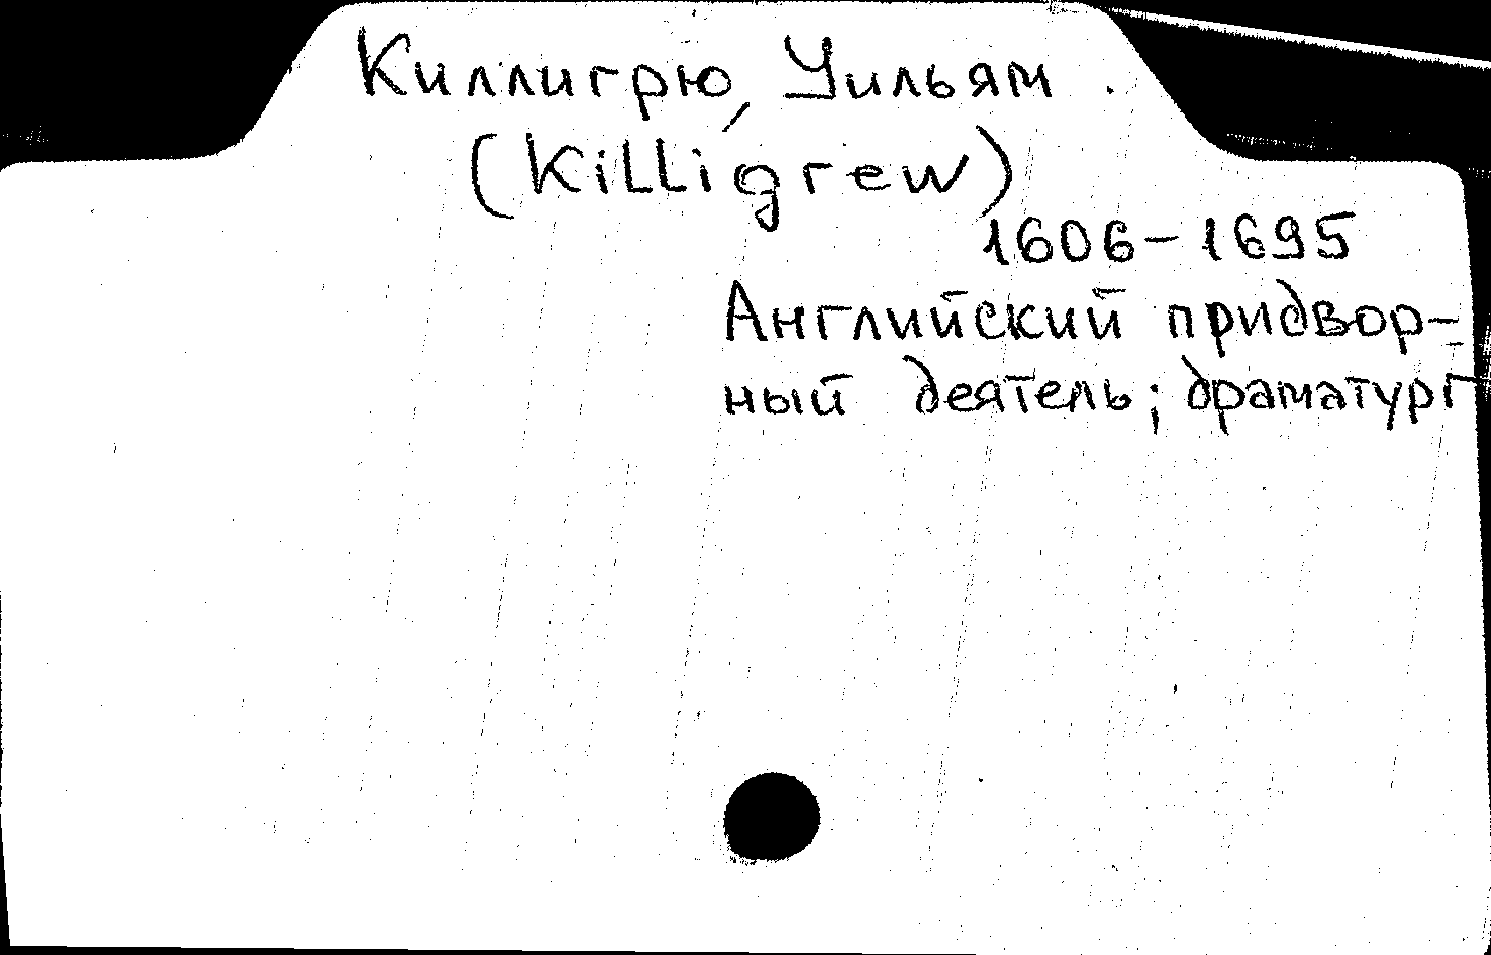 Киллигрю, Уильям
(Killigrew)
1606-1695
Английский придвор-
ный деятель; драматург